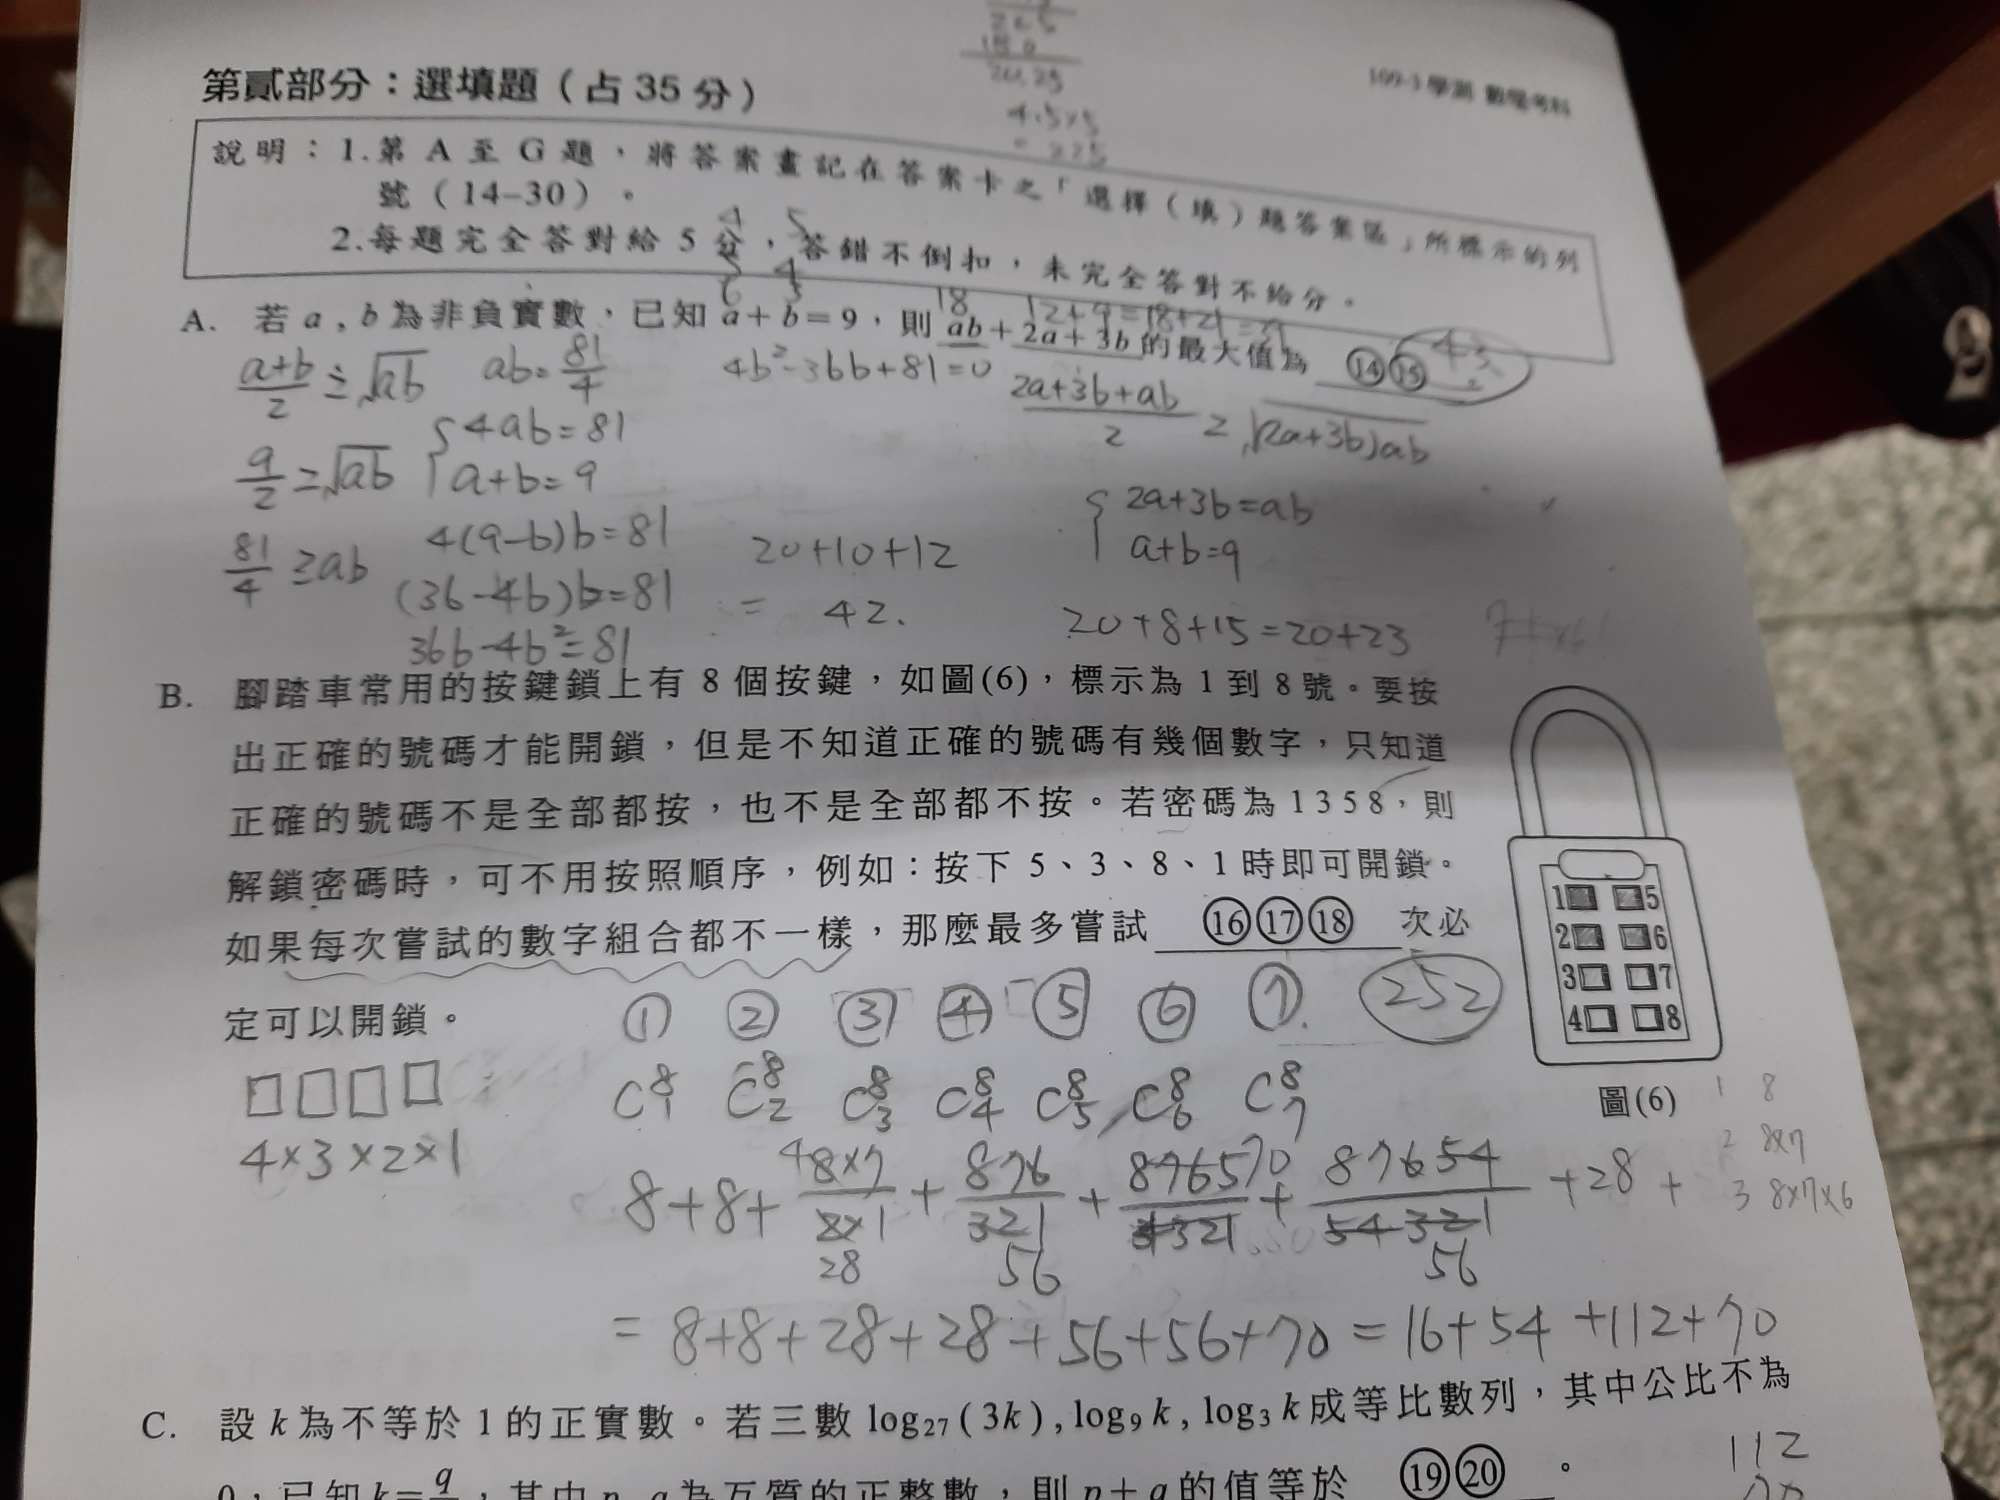 265
180
20.25
4.5×5
= 225
109-3學測 數學考科
第貳部分：選填題（占35分）
說明：1.第A至G題，將答案畫記在答案卡之「選擇（填）題答案區」所標示的列
號（14–30）。
2.每題完全答對給5分，答錯不倒扣，未完全答對不給分。
4 5
5 4
6 3
18 12+9=18+21=39
A. 若a,b為非負實數，已知a+b=9，則ab+2a+3b的最大值為 ⑭⑮ 43
a+b/2 ≥ √ab ab=81/4 4b²-36b+81=0 2a+3b+ab/2 ≥ √(2a+3b)ab
9/2 ≥ √ab { 4ab=81
a+b=9
{ 2a+3b=ab
a+b=9
81/4 ≥ab 4(9-b)b=81 20+10+12
(36-4b)b=81 = 42.
36b-4b²=81 20+8+15=20+23
B. 腳踏車常用的按鍵鎖上有8個按鍵，如圖(6)，標示為1到8號。要按
出正確的號碼才能開鎖，但是不知道正確的號碼有幾個數字，只知道
正確的號碼不是全部都按，也不是全部都不按。若密碼為1358，則
解鎖密碼時，可不用按照順序，例如：按下5、3、8、1時即可開鎖。
如果每次嘗試的數字組合都不一樣，那麼最多嘗試 ⑯⑰⑱ 次必
定可以開鎖。
1 5
2 6
3 7
4 8
圖(6)
① ② ③ ④ ⑤ ⑥ ⑦ 252
C⁸₁ C⁸₂ C⁸₃ C⁸₄ C⁸₅ C⁸₆ C⁸₇
4×3×2×1
1 8
2 8×7
3 8×7×6
8+8+ 8×7/2×1 + 876/321 + 8765/4321 + 87654/54321 +28+
28 56 70 56
=8+8+28+28+56+56+70=16+54+112+70
C. 設k為不等於1的正實數。若三數log₂₇(3k),log₉k,log₃k成等比數列，其中公比不為
0，已知k=q/，其中p,q為互質的正整數，則p+q的值等於 ⑲⑳ 。
112